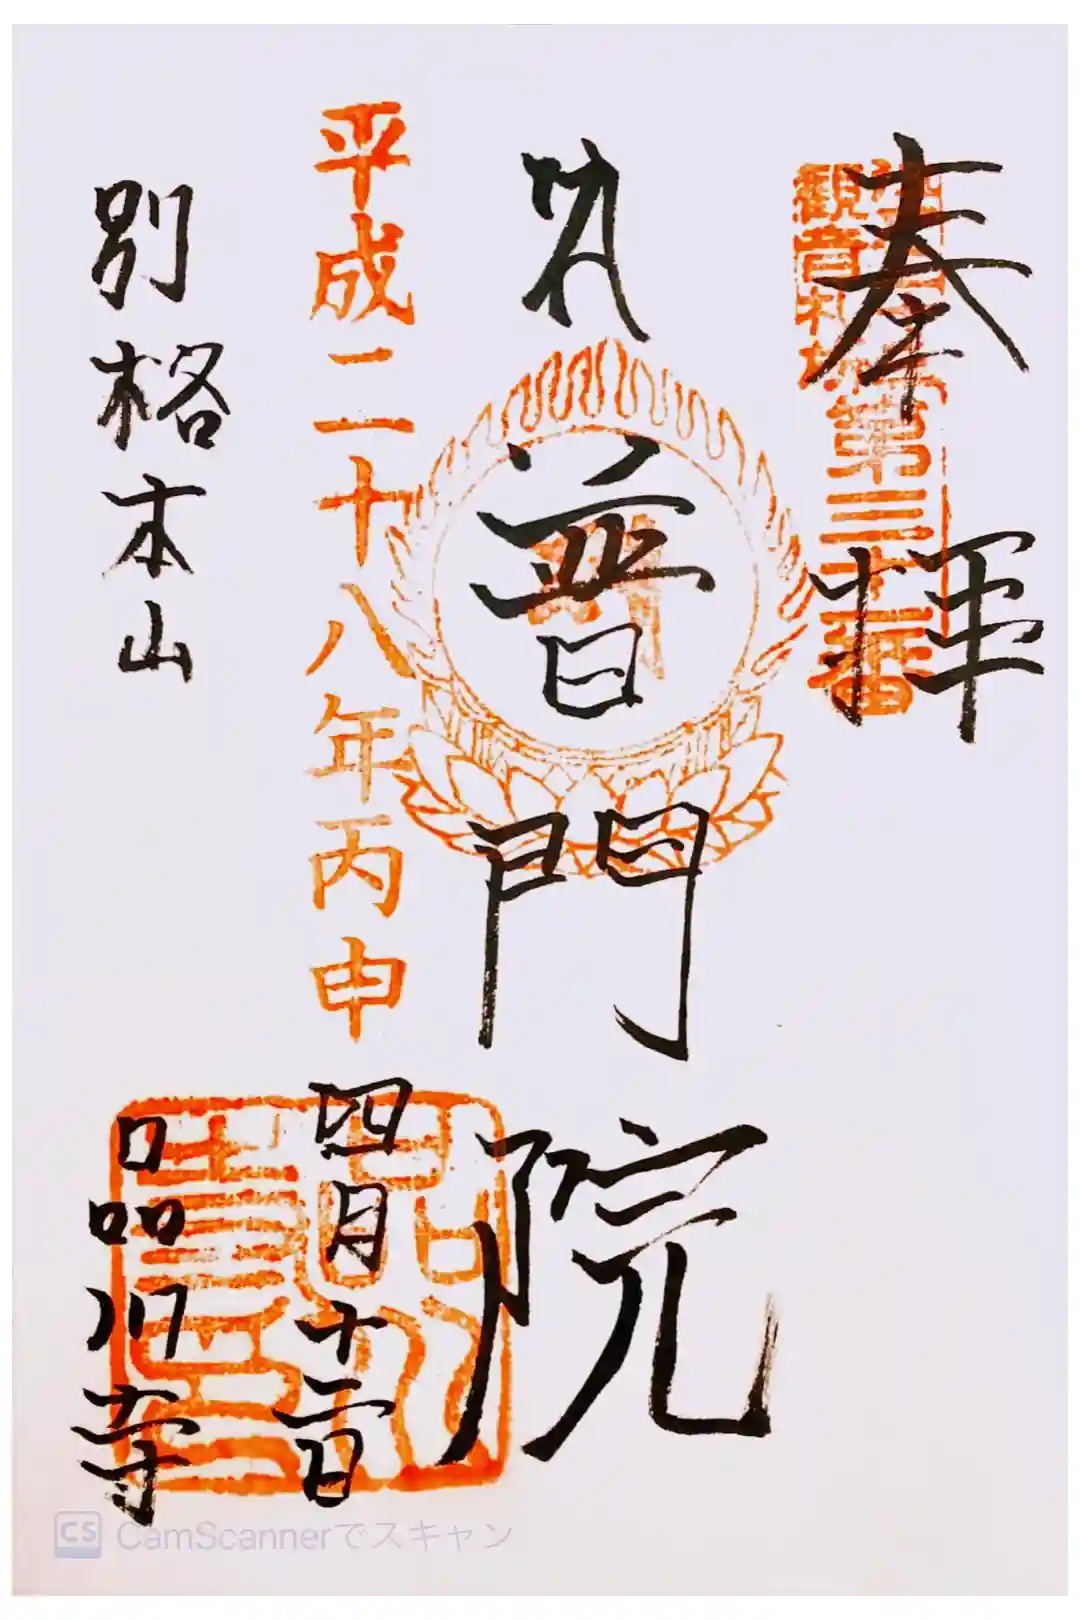 奉拝
江戸三十三
観音札所第三十一番
普門院
平成二十八年丙申
四月十二日
別格本山
品川寺
CS CamScannerでスキャン